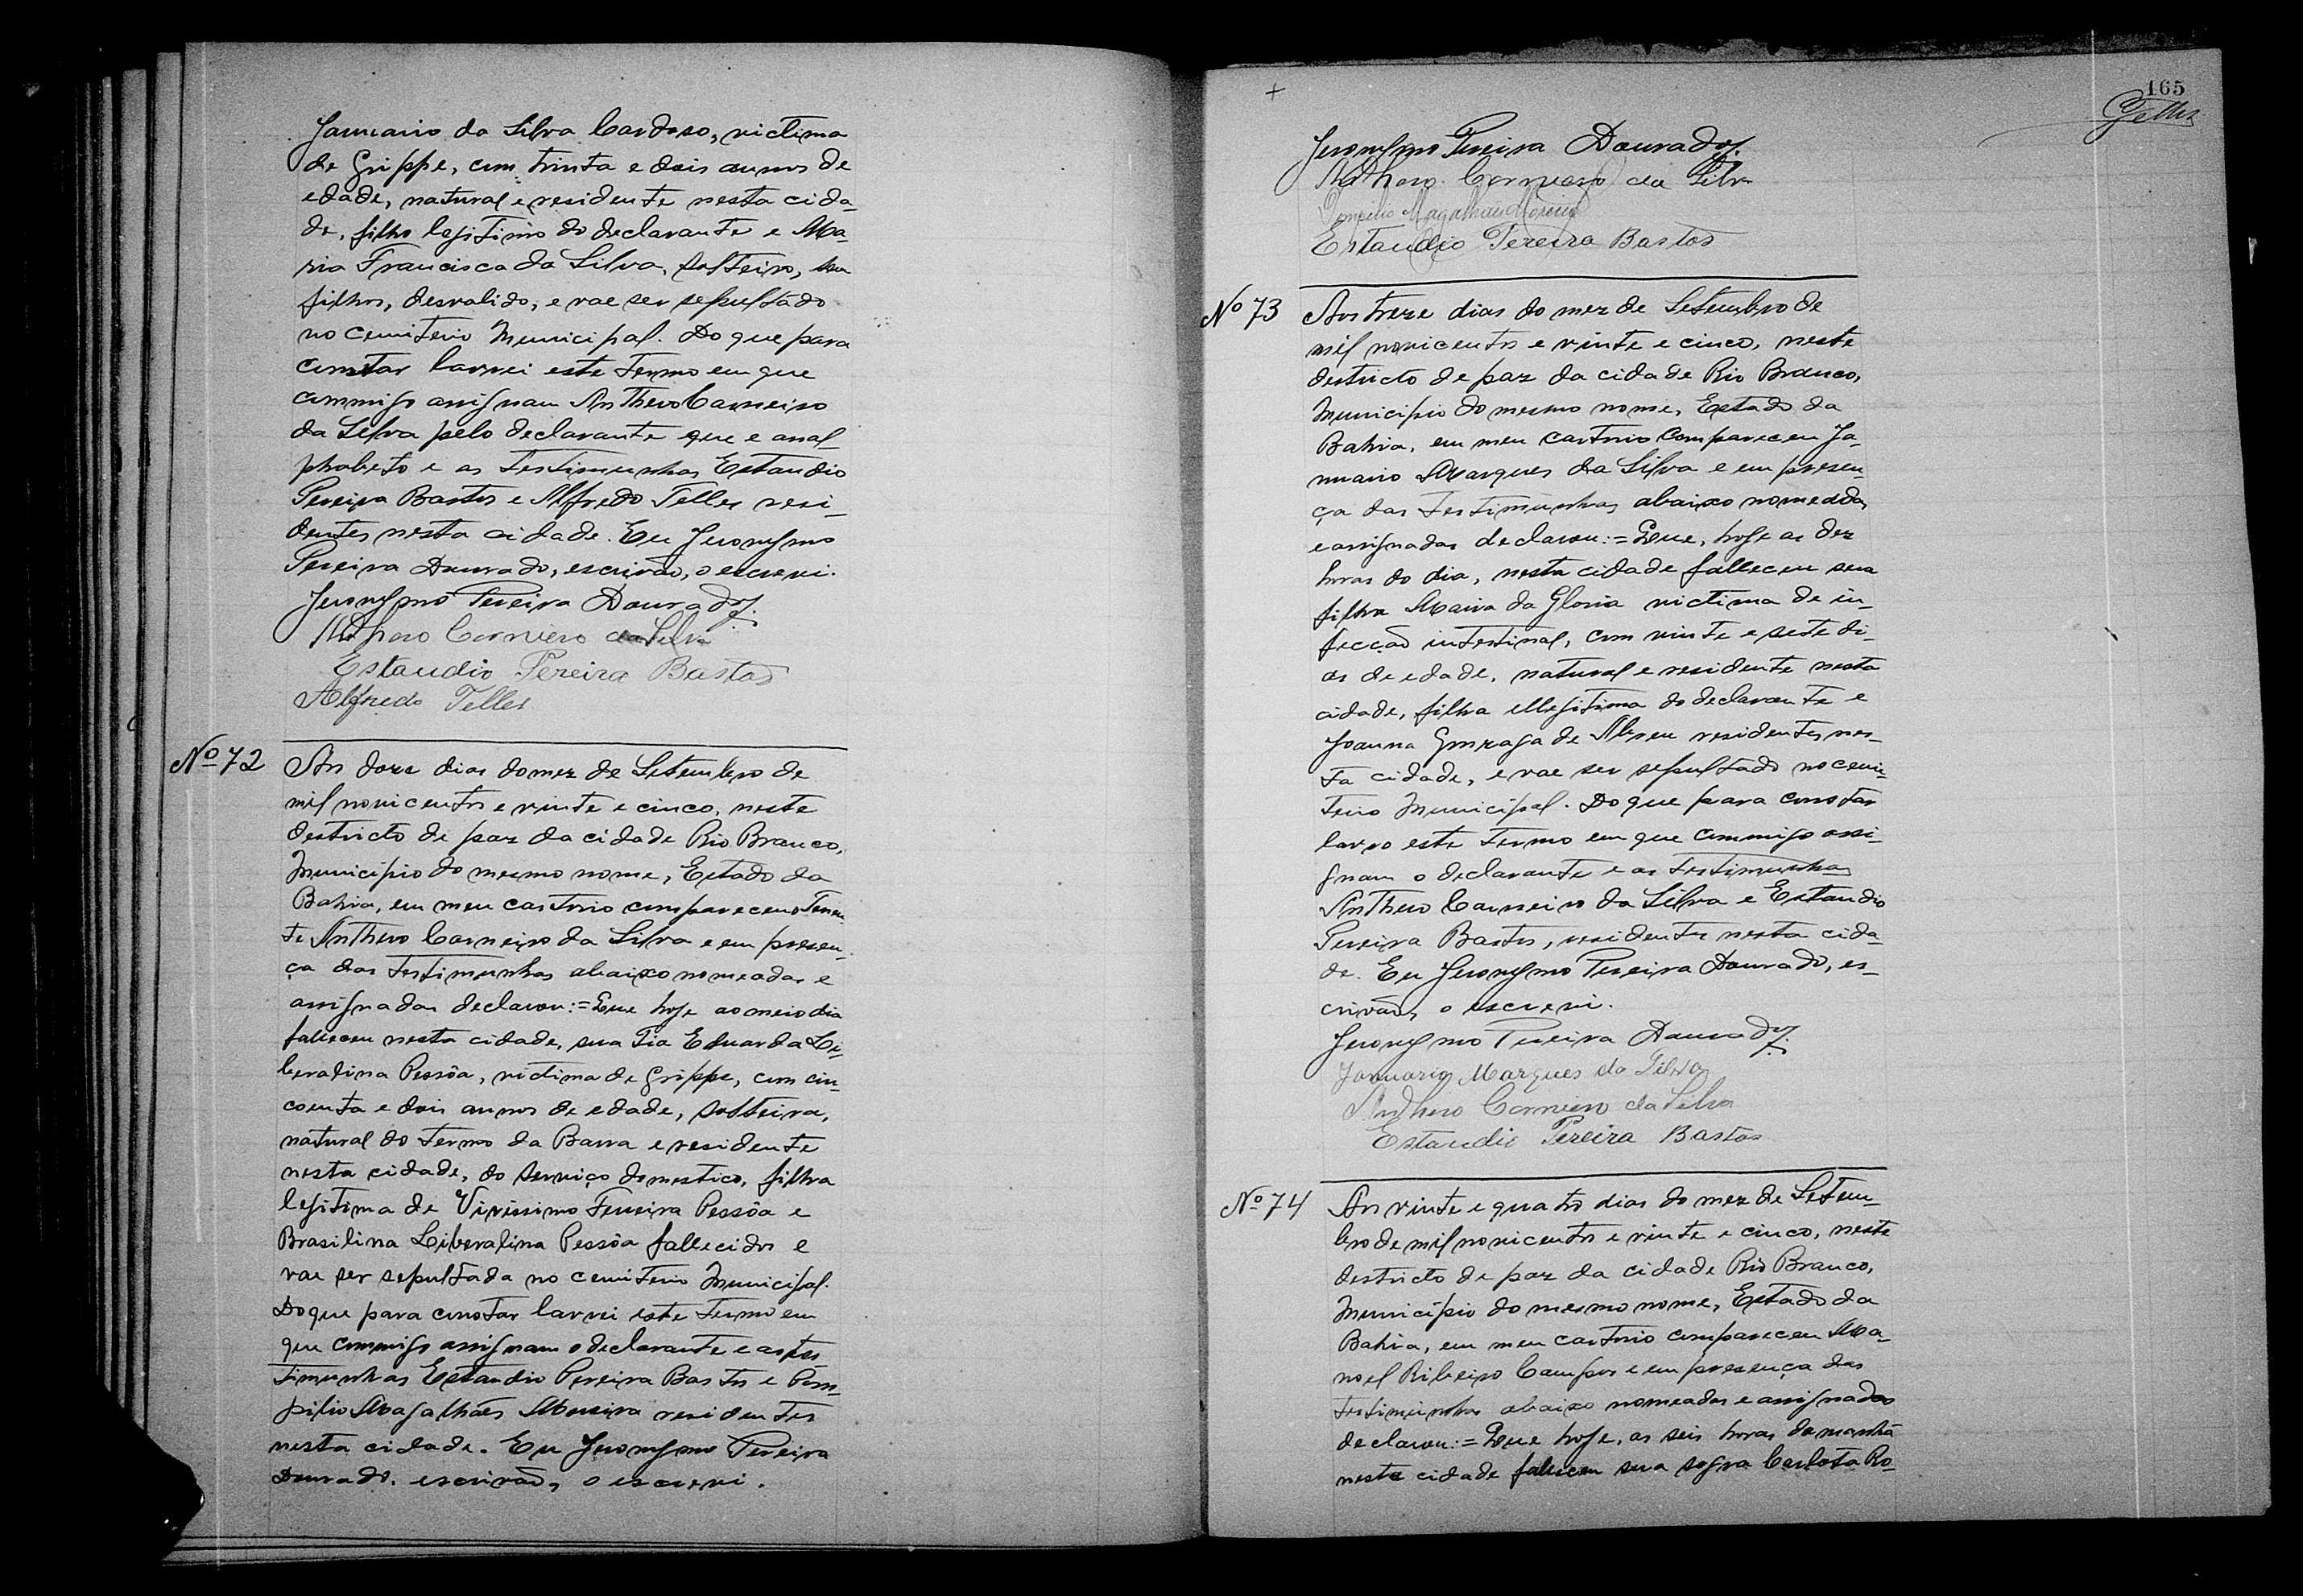 Januario da Silva Cardoso, victima
de Grippe, com trinta e dois annos de
edade, natural e residente nesta cida-
de, filho legitimo do declarante e Ma-
ria Francisca da Silva, solteiro, sem
filhos, desvalido, e vae ser sepultado
no cemiterio Municipal. Do que para
constar lavrei este termo em que
commigo assignam Anthero Carneiro
da Silva pelo declarante que e anal-
phabeto e as testimunhas Estaudio
Pereira Bastos e Alfredo Telles resi-
dentes nesta cidade. Eu Jeronymo
Pereira Dourado, escrivão, o escrevi.
Jeronymo Pereira Dourado.
Anthero Carneiro da Silva
Estaudio Pereira Bastos
Alfredo Telles
Nº 72 Aos doze dias do mez de Setembro de
mil novicentos e vinte e cinco, neste
destricto de paz da cidade Rio Branco,
Municipio do mesmo nome, Estado da
Bahia, em meu cartorio compareceu o Tenen-
te Anthero Carneiro da Silva e em presen-
ça das testimunhas abaixo nomeadas e
assignadas declarou:= Que hoje ao meio dia
falleceu nesta cidade, sua Tia Eduarda Li-
beralina Pessôa, victima de Grippe, com cin-
coenta e dois annos de edade, solteira,
natural do termo da Barra e residente
nesta cidade, do serviço domestico, filha
legitima de Virissimo Ferreira Pessôa e
Brasilina Liberalina Pessôa fallecidos e
vae ser sepultada no cemiterio Municipal.
Do que para constar lavrei este termo em
que commigo assignam o declarante e as tes-
timunhas Estaudio Pereira Bastos e Pom-
pilio Magalhães Moreira residentes
nesta cidade. Eu Jeronymo Pereira
Dourado. escrivão, o escrevi.
165
Telles
Jeronymo Pereira Dourado.
Anthero Carneiro da Silva
Pompilio Magalhães Moreira
Estaudio Pereira Bastos
Nº 73 Aos treze dias do mez de Setembro de
mil novicentos e vinte e cinco, neste
destricto de paz da cidade Rio Branco,
Municipio do mesmo nome, Estado da
Bahia, em meu cartorio compareceu Ja-
nuario Marques da Silva e em presen-
ça das testimunhas abaixo nomeadas
e assignadas declarou:= Que, hoje as dez
horas do dia, nesta cidade falleceu sua
filha Maria da Gloria victima de in-
fecção intestinal, com vinte e sete di-
as de edade, natural e residente nesta
cidade, filha illegitima do declarante e
Joanna Gonzaga de Abreu residentes nes-
ta cidade, e vae ser sepultado no cemi-
terio Municipal. Do que para constar
lavro este termo em que commigo assi-
gnam o declarante e as testimunhas
Anthero Carneiro da Silva e Estaudio
Pereira Bastos, residentes nesta cida-
de. Eu Jeronymo Pereira Dourado, es-
crivão, o escrevi.
Jeronymo Pereira Dourado.
Januario Marques da Silva
Anthero Carneiro da Silva
Estaudio Pereira Bastos
Nº 74 Aos vinte e quatro dias do mez de Setem-
bro de mil novicentos e vinte e cinco, neste
destricto de paz da cidade Rio Branco,
Municipio do mesmo nome, Estado da
Bahia, em meu cartorio compareceu Ma-
noel Ribeiro Campos e em presença das
testimunhas abaixo nomeadas e assignadas
declarou:= Que hoje, as seis horas da manhã
nesta cidade falleceu sua sogra Carlota Ro-